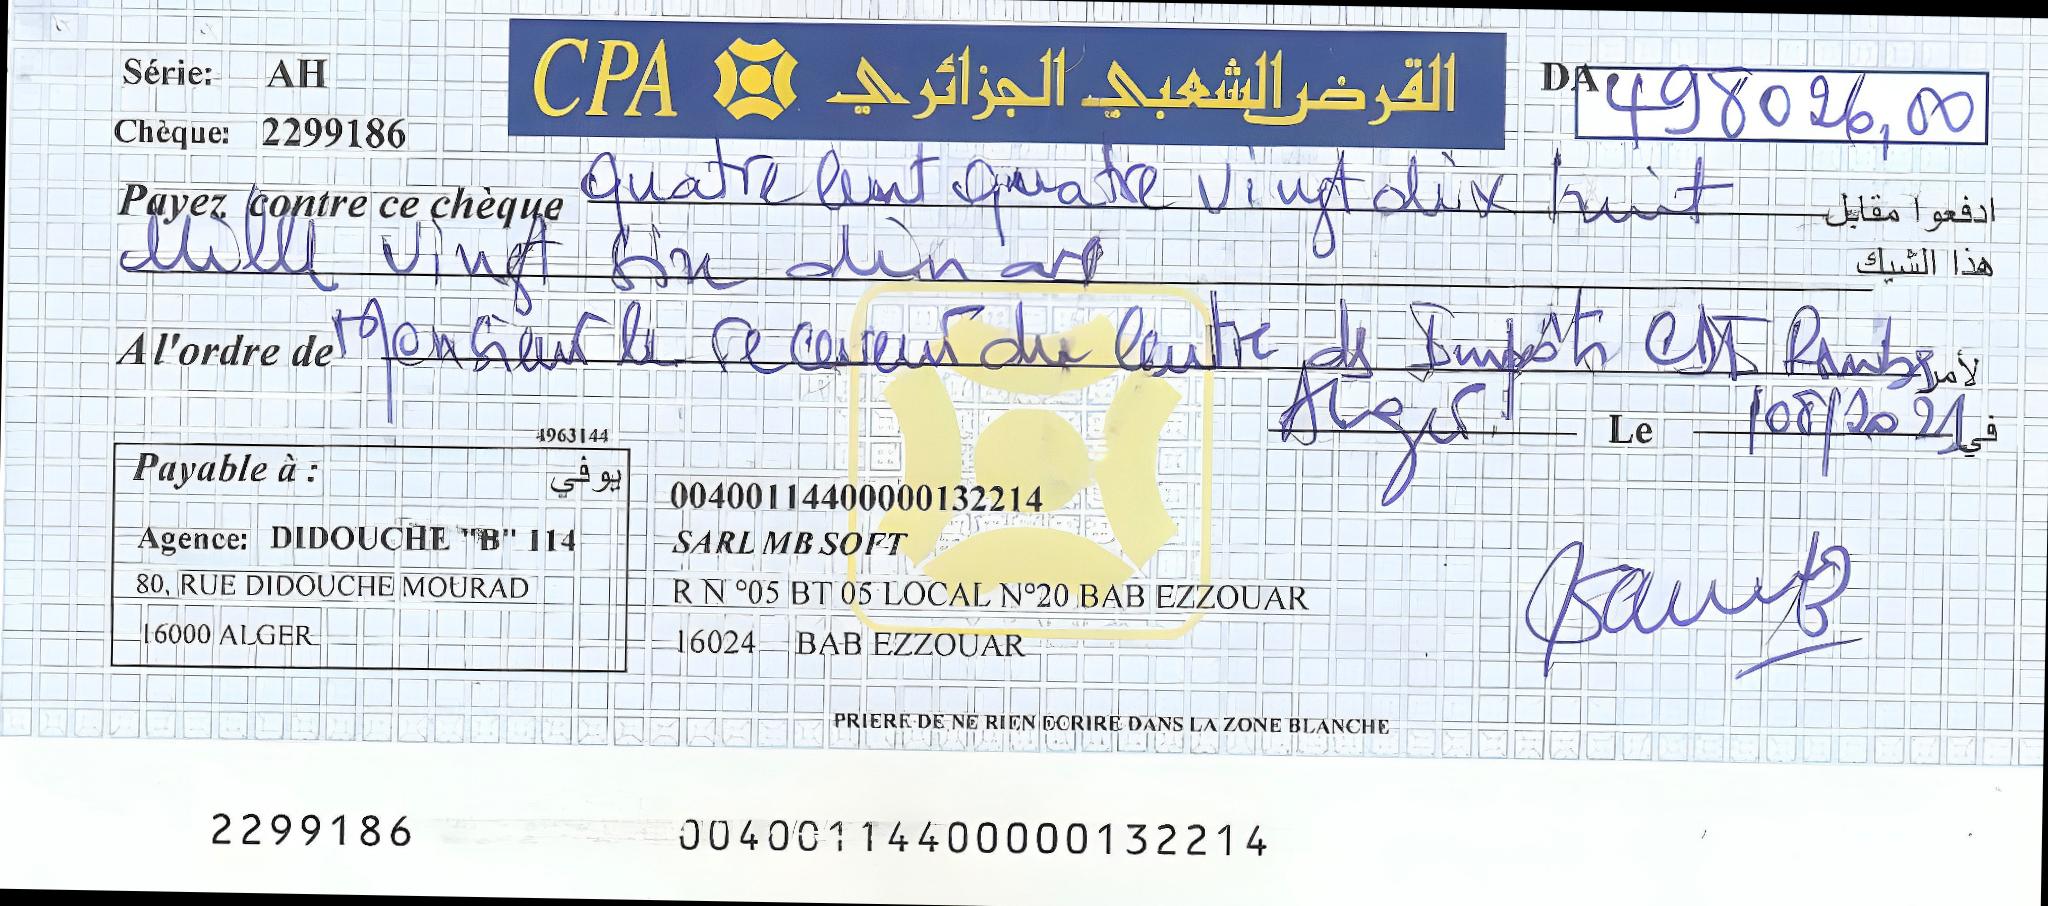 Série: AH
CPA القرض الشعبي الجزائري
DA 498026,00
Chèque: 2299186
Payez contre ce chèque quatre cent quatre vingt dix huit ادفعوا مقابل
Mille vingt six dinars هذا الشيك
A l'ordre de Monsieur le receveur du Centre des Impôts CDI لأمر
Alger Le /08/2021 في
4963144
Payable à : يوفي
Agence: DIDOUCHE "B" 114
80, RUE DIDOUCHE MOURAD
16000 ALGER
00400114400000132214
SARL MB SOFT
R N °05 BT 05 LOCAL N°20 BAB EZZOUAR
16024 BAB EZZOUAR
PRIERE DE NE RIEN ECRIRE DANS LA ZONE BLANCHE
2299186 00400114400000132214